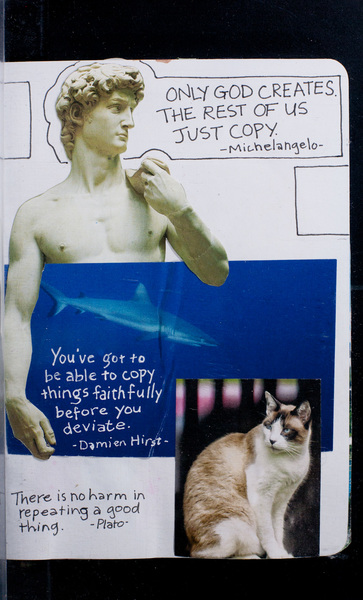 ONLY GOD CREATES.
THE REST OF US
JUST COPY.
-Michelangelo-
You've got to
be able to copy
things faithfully
before you
deviate.
-Damien Hirst-
There is no harm in
repeating a good
thing. -Plato-